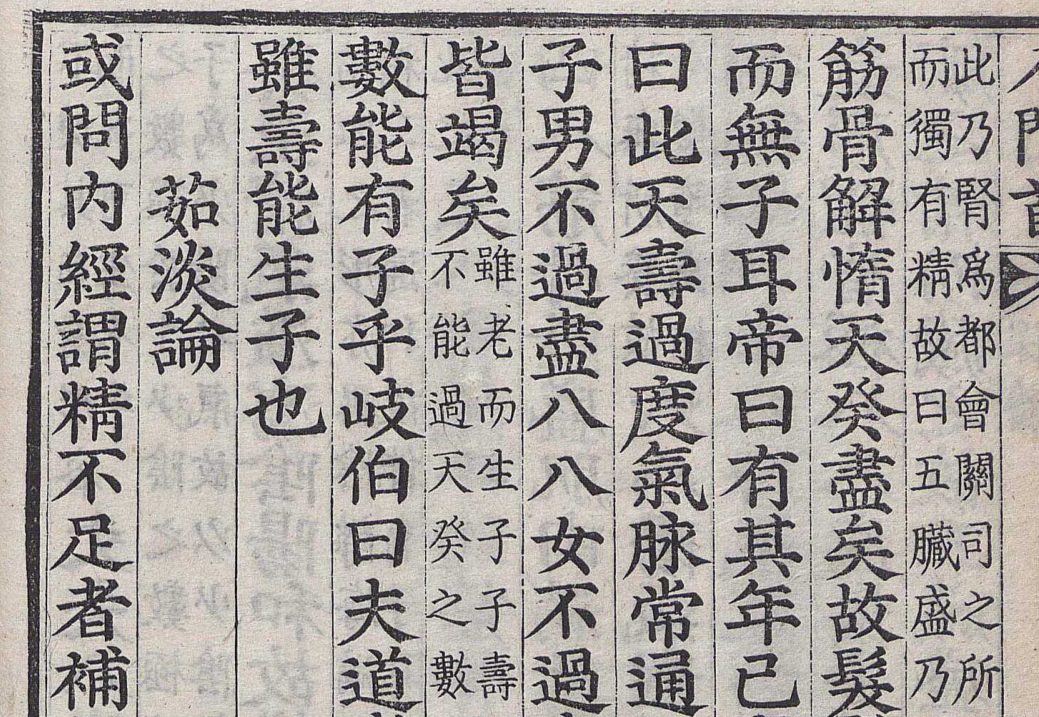 門
此乃腎爲都會關司之所
而獨有精故曰五臟盛乃
筋骨解惰天癸盡矣故髮
而無子耳帝曰有其年已
曰此天壽過度氣脉常通
子男不過盡八八女不過
皆竭矣
雖老而生子子壽
不能過天癸之數
數能有子乎岐伯曰夫道
雖壽能生子也
茹淡論
或問内經謂精不足者補